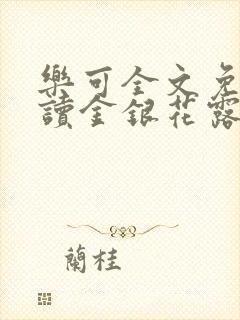 樂可全文免
讀金銀花露
蘭桂